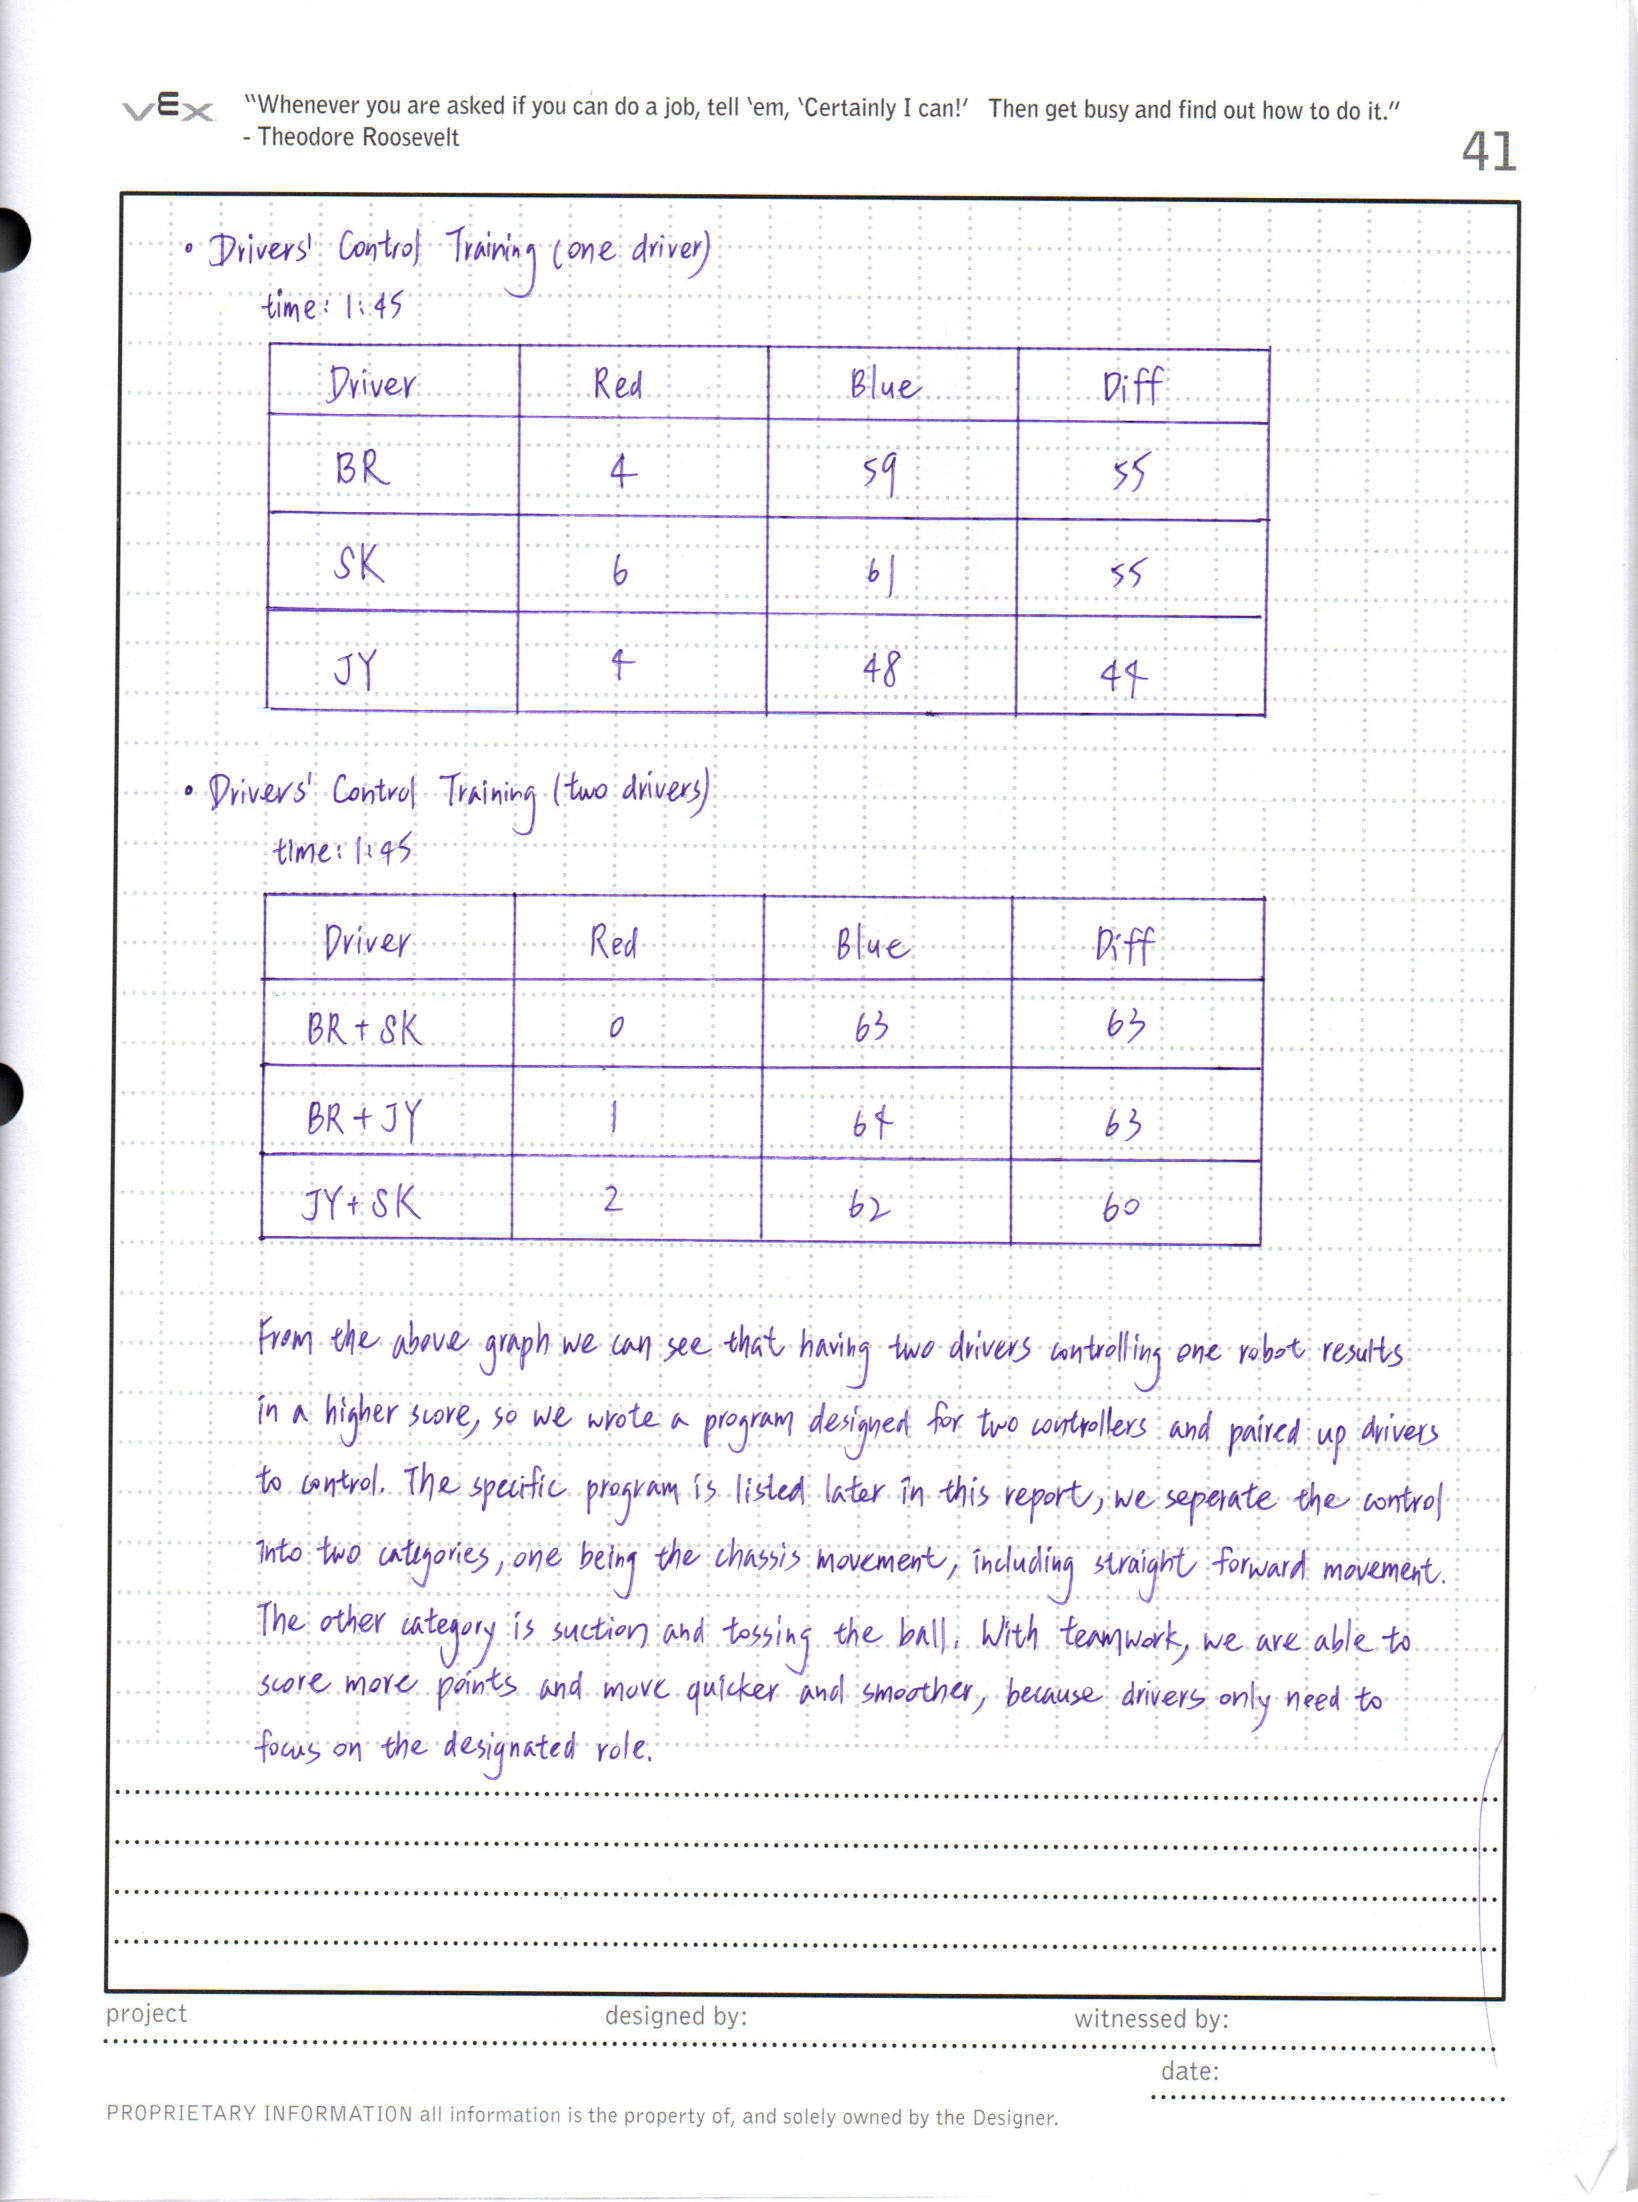 VEX "Whenever you are asked if you can do a job, tell 'em, 'Certainly I can!' Then get busy and find out how to do it."
- Theodore Roosevelt
41
• Drivers' Control Training (one driver)
time: 1:45
Driver Red Blue Diff
BR 4 59 55
SK 6 61 55
JY 4 48 44
• Drivers' Control Training (two drivers)
time: 1:45
Driver Red Blue Diff
BR + SK 0 63 63
BR + JY 1 64 63
JY + SK 2 62 60
From the above graph we can see that having two drivers controlling one robot results
in a higher score, so we wrote a program designed for two controllers and paired up drivers
to control. The specific program is listed later in this report, we seperate the control
into two categories, one being the chassis movement, including straight forward movement.
The other category is suction and tossing the ball. With teamwork, we are able to
score more points and move quicker and smoother, because drivers only need to
focus on the designated role.
project designed by: witnessed by:
date:
PROPRIETARY INFORMATION all information is the property of, and solely owned by the Designer.